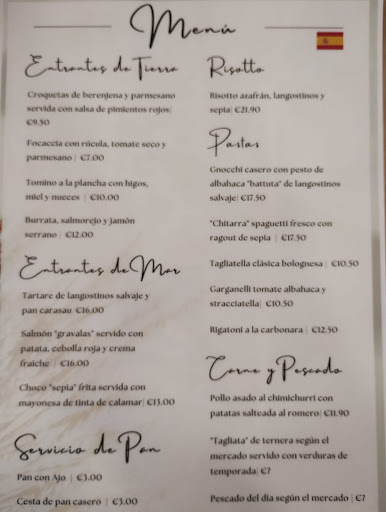 Menú
Entrantes de Tierra
Croquetas de berenjena y parmesano
servida con salsa de pimientos rojos|
€9.50
Focaccia con rúcula, tomate seco y
parmesano | €7.00
Tomino a la plancha con higos,
miel y nueces | €10.00
Burrata, salmorejo y jamón
serrano | €12.00
Entrantes de Mar
Tartare de langostinos salvaje y
pan carasau €16.00
Salmón "gravalas" servido con
patata, cebolla roja y crema
fraiche | €16.00
Choco "sepia" frita servida con
mayonesa de tinta de calamar| €13.00
Servicio de Pan
Pan con Ajo | €3.00
Cesta de pan casero | €3.00
Risotto
Risotto azafrán, langostinos y
sepia| €21.90
Pastas
Gnocchi casero con pesto de
albahaca "battuta" de langostinos
salvaje| €17.50
"Chitarra" spaguetti fresco con
ragout de sepia | €17.50
Tagliatella clásica bolognesa | €10.50
Garganelli tomate albahaca y
stracciatella| €10.50
Rigatoni a la carbonara | €12.50
Carne y Pescado
Pollo asado al chimichurri con
patatas salteada al romero| €11.90
"Tagliata" de ternera según el
mercado servido con verduras de
temporada| €?
Pescado del día según el mercado | €?